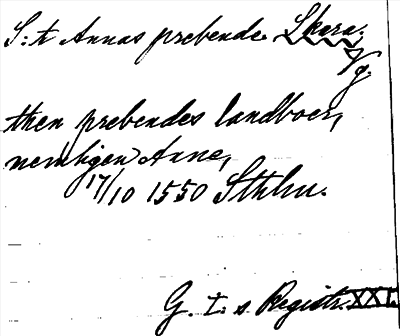 S:t Annas prebende. Skara.
Vg.
then prebendes landboer,
nemligen Anne,
17/10 1550 Sthlm.
G. I. s Registr. XXI.